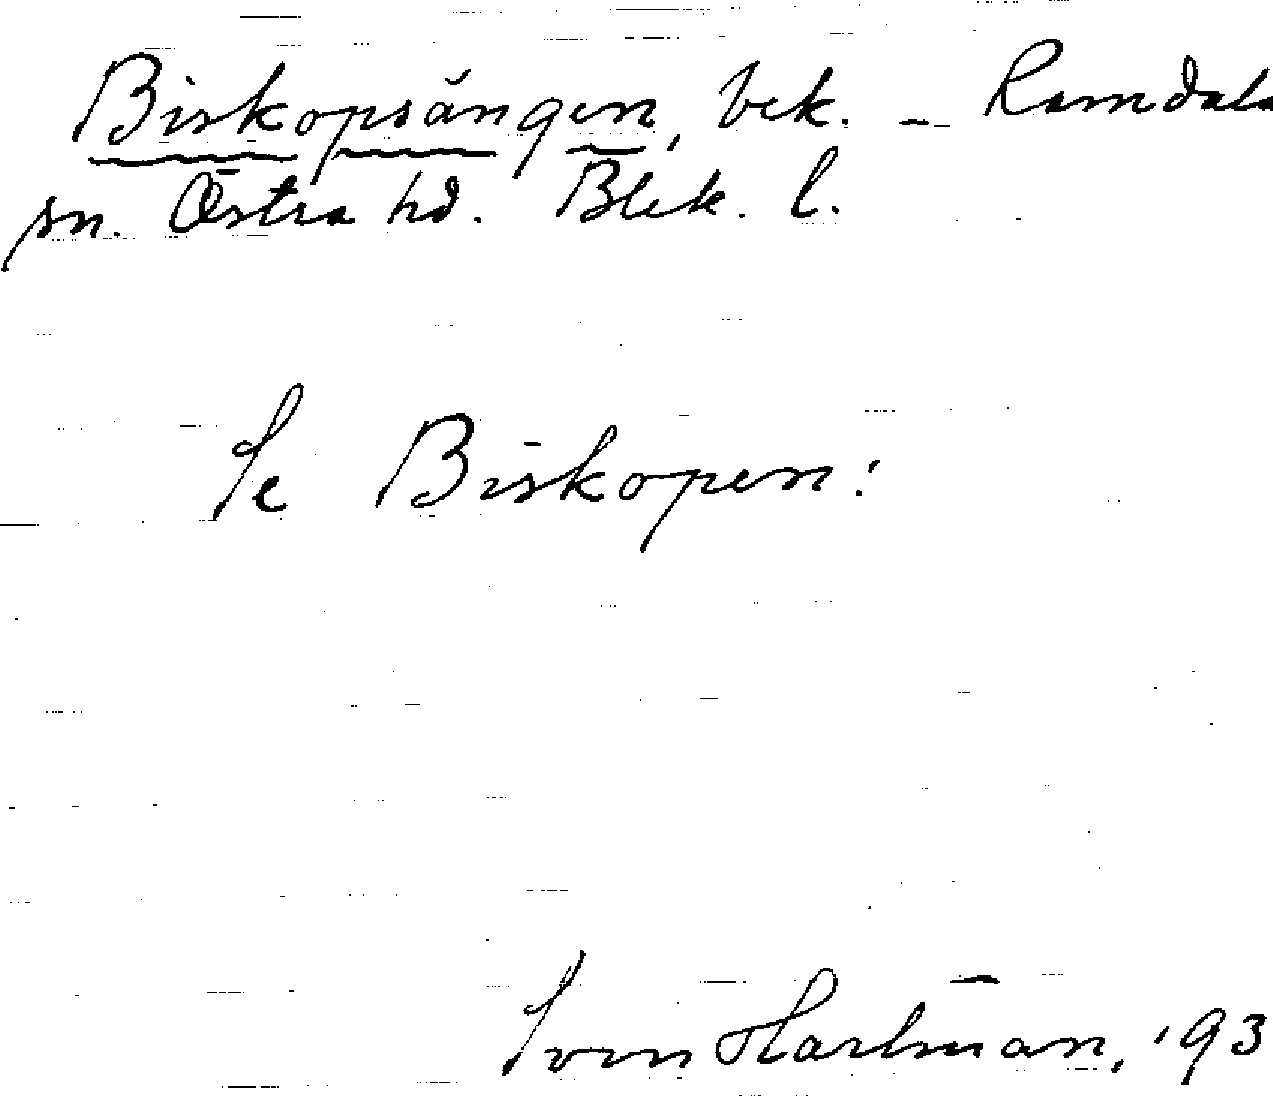 Biskopsängen, bek. – Ramdala
sn. Östra hd. Blek. l.
Se Biskopen!
Sven Hartman, '93